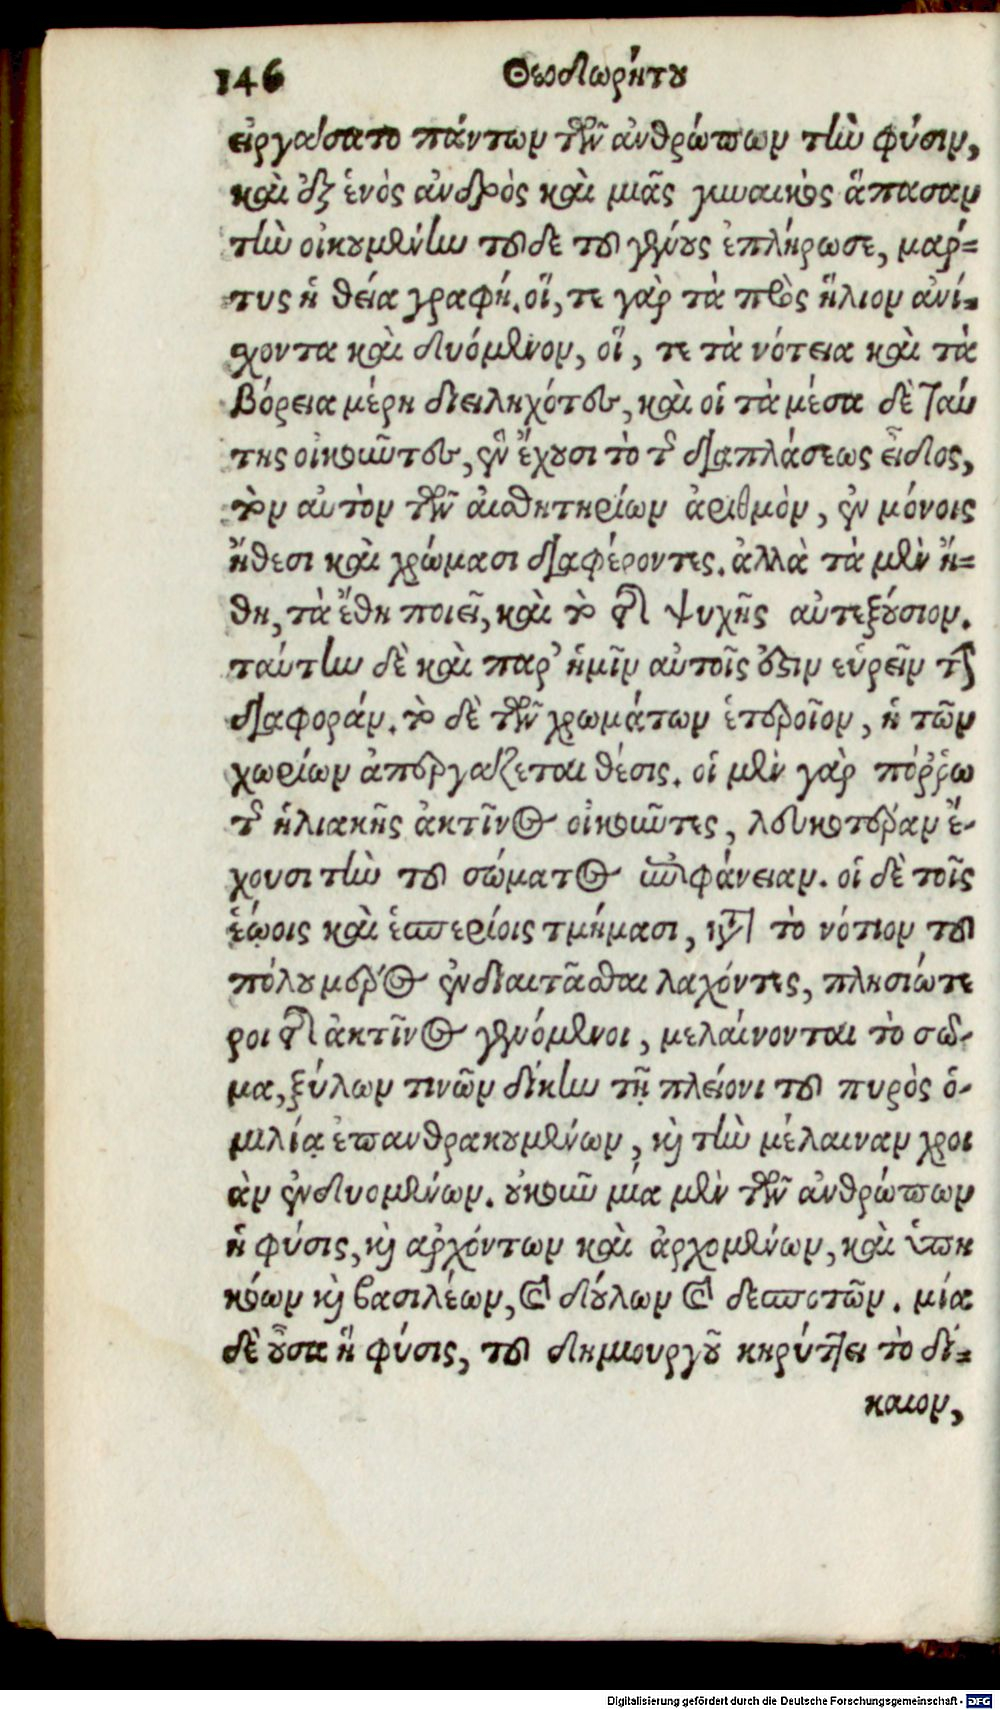 146 Θεοδωρήτου
εἰργάσατο πάντων τῶν ἀνθρώπων τὴν φύσιν,
καὶ ἐξ ἑνὸς ἀνδρὸς καὶ μιᾶς γυναικὸς ἅπασαν
τὴν οἰκουμένην τοῦδε τοῦ γένους ἐπλήρωσε, μάρ-
τυς ἡ θεία γραφή. οἵ, τε γὰρ τὰ πρὸς ἥλιον ἀνί-
χοντα καὶ δυόμενον, οἵ, τε τὰ νότεια καὶ τὰ
βόρεια μέρη διειληχότες, καὶ οἱ τὰ μέσα δὲ ταύ
της οἰκοῦντες, ἓν ἔχουσι τὸ τῆς διαπλάσεως εἶδος,
τὸν αὐτὸν τῶν αἰσθητηρίων ἀριθμὸν, ἐν μόνοις
ἤθεσι καὶ χρώμασι διαφέροντες. ἀλλὰ τὰ μὲν ἤ-
θη, τὰ ἔθη ποιεῖ, καὶ τὸ τῆς ψυχῆς αὐτεξούσιον.
ταύτην δὲ καὶ παρ' ἡμῖν αὐτοῖς ἔστιν εὑρεῖν τὴν
διαφοράν. τὸ δὲ τῶν χρωμάτων ἑτεροῖον, ἡ τῶν
χωρίων ἀπεργάζεται θέσις. οἱ μὲν γὰρ πόῤῥω
τῆς ἡλιακῆς ἀκτῖνος οἰκοῦντες, λευκοτέραν ἔ-
χουσι τὴν τοῦ σώματος ἐπιφάνειαν. οἱ δὲ τοῖς
ἑῴοις καὶ ἑσπερίοις τμήμασι, κατὰ τὸ νότιον τοῦ
πόλου μέρος ἐνδιαιτᾶσθαι λαχόντες, πλησιώτε
ροι τῆς ἀκτῖνος γενόμενοι, μελαίνονται τὸ σῶ-
μα, ξύλων τινῶν δίκην τῇ πλείονι τοῦ πυρὸς ὁ-
μιλίᾳ ἐπανθρακουμένων, καὶ τὴν μέλαιναν χροι
ὰν ἐνδυομένων. οὐκοῦν μία μὲν τῶν ἀνθρώπων
ἡ φύσις, καὶ ἀρχόντων καὶ ἀρχομένων, καὶ ὑπη
κόων καὶ βασιλέων, καὶ δούλων καὶ δεσποτῶν. μία
δὲ οὖσα ἡ φύσις, τοῦ δημιουργοῦ κηρύττει τὸ δί-
καιον,
Digitalisierung gefördert durch die Deutsche Forschungsgemeinschaft - DFG